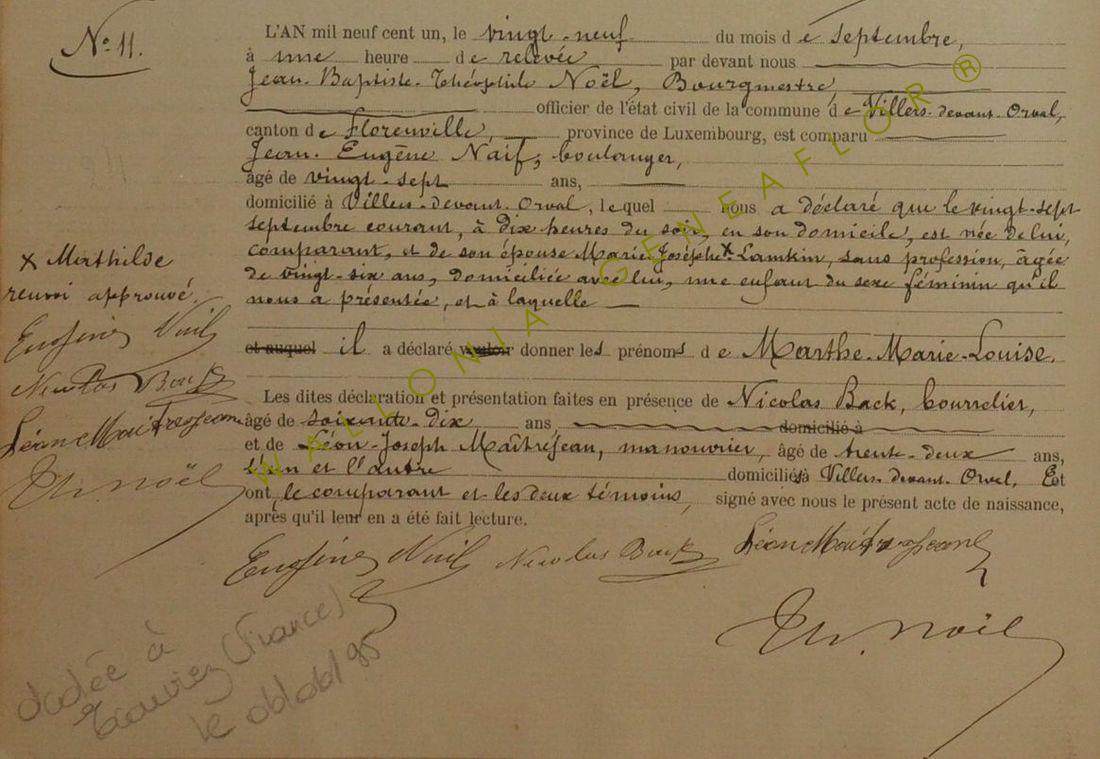 N° 11.
L'AN mil neuf cent un, le vingt-neuf du mois de septembre,
à une heure de relevée par devant nous
Jean-Baptiste-Théophile Noël, Bourgmestre,
officier de l'état civil de la commune de Villers-devant-Orval,
canton de Florenville, province de Luxembourg, est comparu
Jean-Eugène Naif, boulanger,
âgé de vingt-sept ans,
domicilié à Villers-devant-Orval, lequel nous a déclaré que le vingt-sept
septembre courant, à dix heures du soir, en son domicile, est née de lui,
comparant, et de son épouse Marie-Josèphe x Lamkin, sans profession, âgée
de vingt-six ans, domiciliée avec lui, une enfant du sexe féminin qu'il
nous a présentée, et à laquelle
et auquel il a déclaré vouloir donner les prénoms de Marthe-Marie-Louise.
Les dites déclaration et présentation faites en présence de Nicolas Back, bourrelier,
âgé de soixante-dix ans, domicilié à
et de Léon-Joseph Maîtrejean, manouvrier, âgé de trente-deux ans,
l'un et l'autre domiciliés à Villers-devant-Orval, Et
ont, le comparant et les deux témoins, signé avec nous le présent acte de naissance,
après qu'il leur en a été fait lecture.
x Mathilde
renvoi approuvé.
Eugène Naif
Nicolas Back
Léon Maîtrejean
Th. Noël
Eugène Naif Nicolas Back Léon Maîtrejean
Th. Noël
à
(France)
le
WALLONIA GENEAFLOR ®